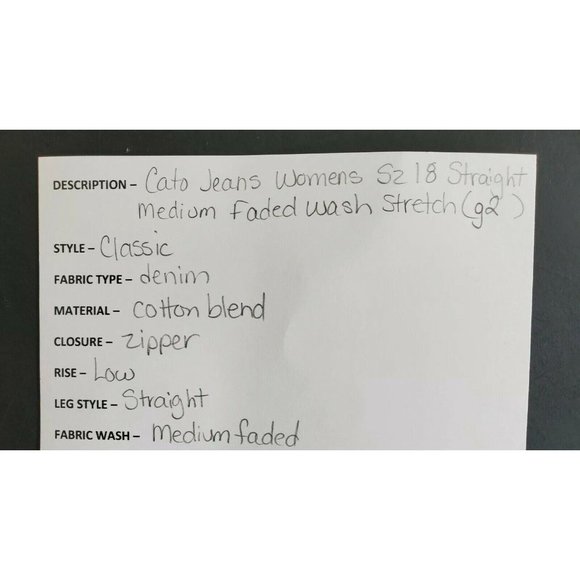 DESCRIPTION – Cato Jeans Womens Sz 18 Straight
Medium Faded Wash Stretch (g2 )
STYLE – Classic
FABRIC TYPE – denim
MATERIAL – cotton blend
CLOSURE – zipper
RISE – Low
LEG STYLE – Straight
FABRIC WASH – Medium faded